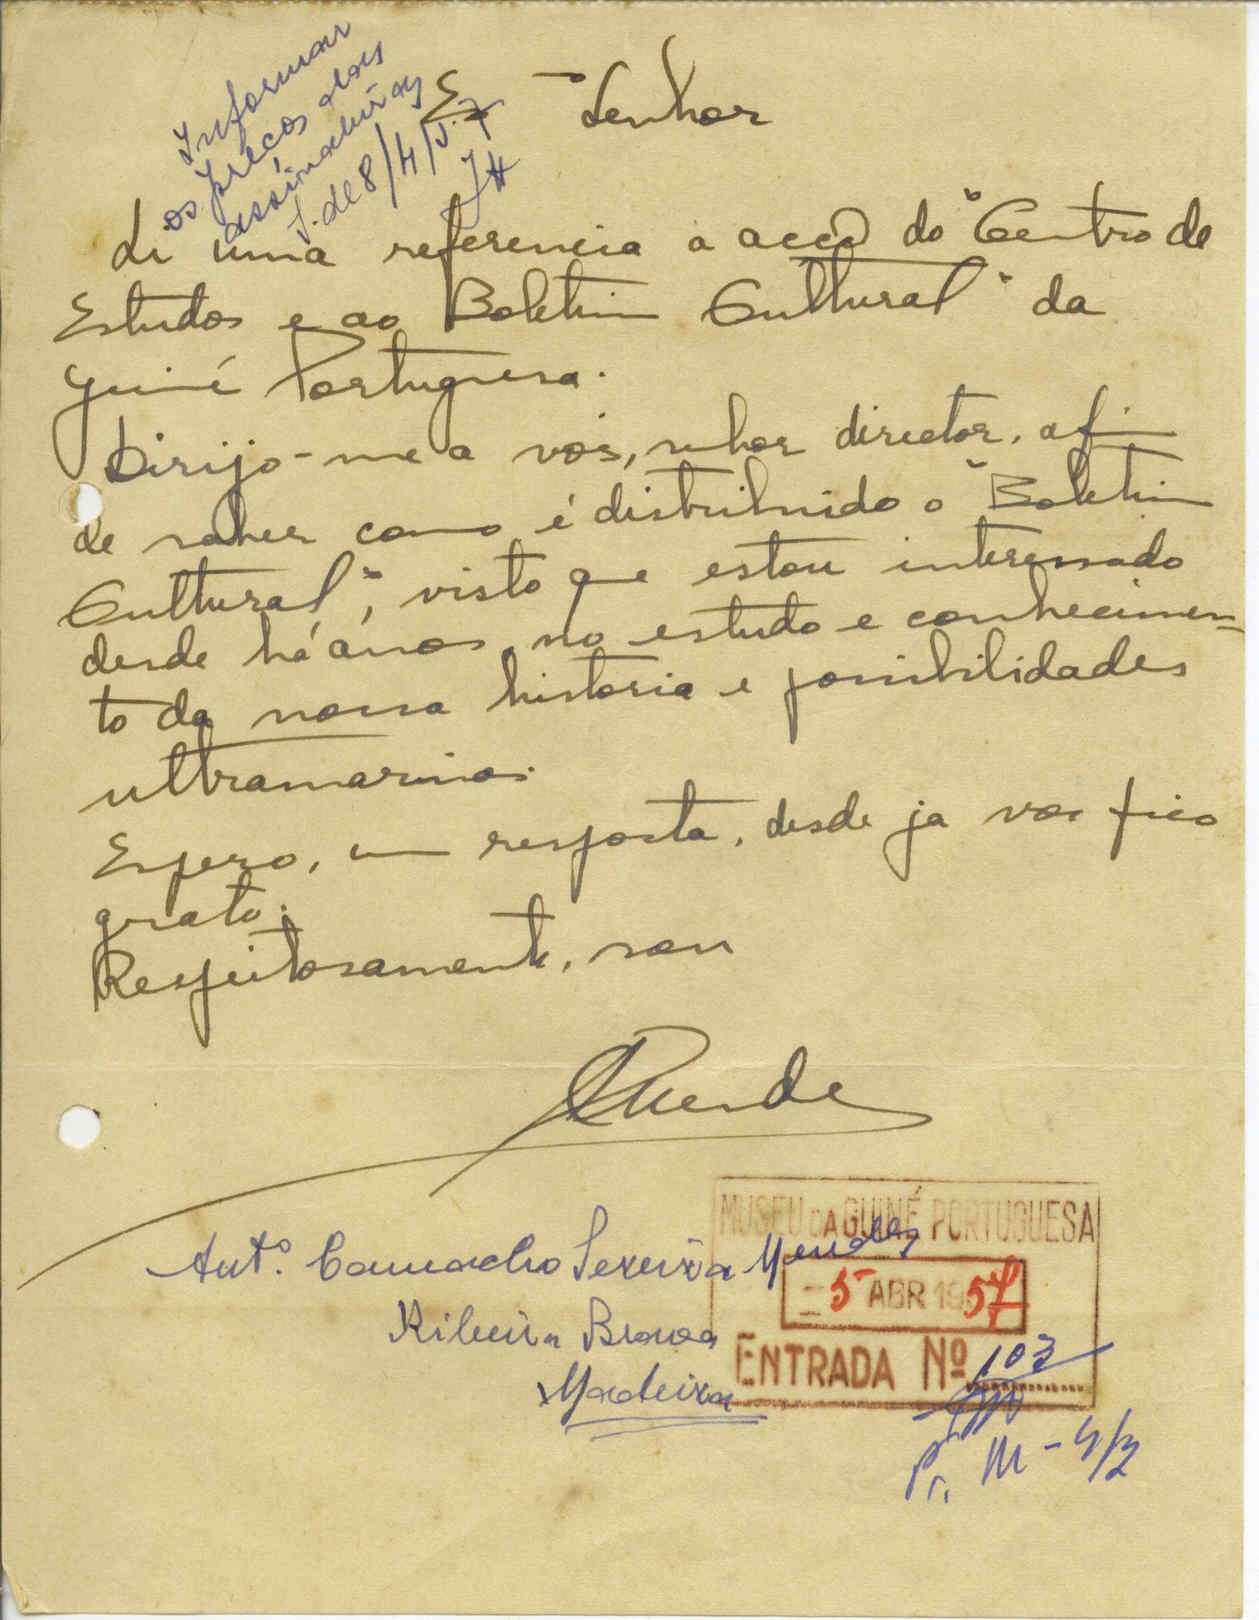 Informar
os preços das
assinaturas
8/4/57
Exmo Senhor
Li uma referencia a acção do "Centro de
Estudos e ao Boletim Cultural" da
Guiné Portuguesa.
Dirijo-me a vós, senhor director, afim
de saber como é distribuido o "Boletim
Cultural", visto que estou interessado
desde há anos, no estudo e conhecimen-
to da nossa historia e possibilidades
ultramarinas.
Espero, em resposta, desde ja vos fico
grato.
Respeitosamente, sou
Mendes
MUSEU DA GUINÉ PORTUGUESA
Antº. Camacho Teixeira Mendes
5 ABR 1957
Ribeira Brava
ENTRADA Nº 103
Madeira
Pr. M-4/2